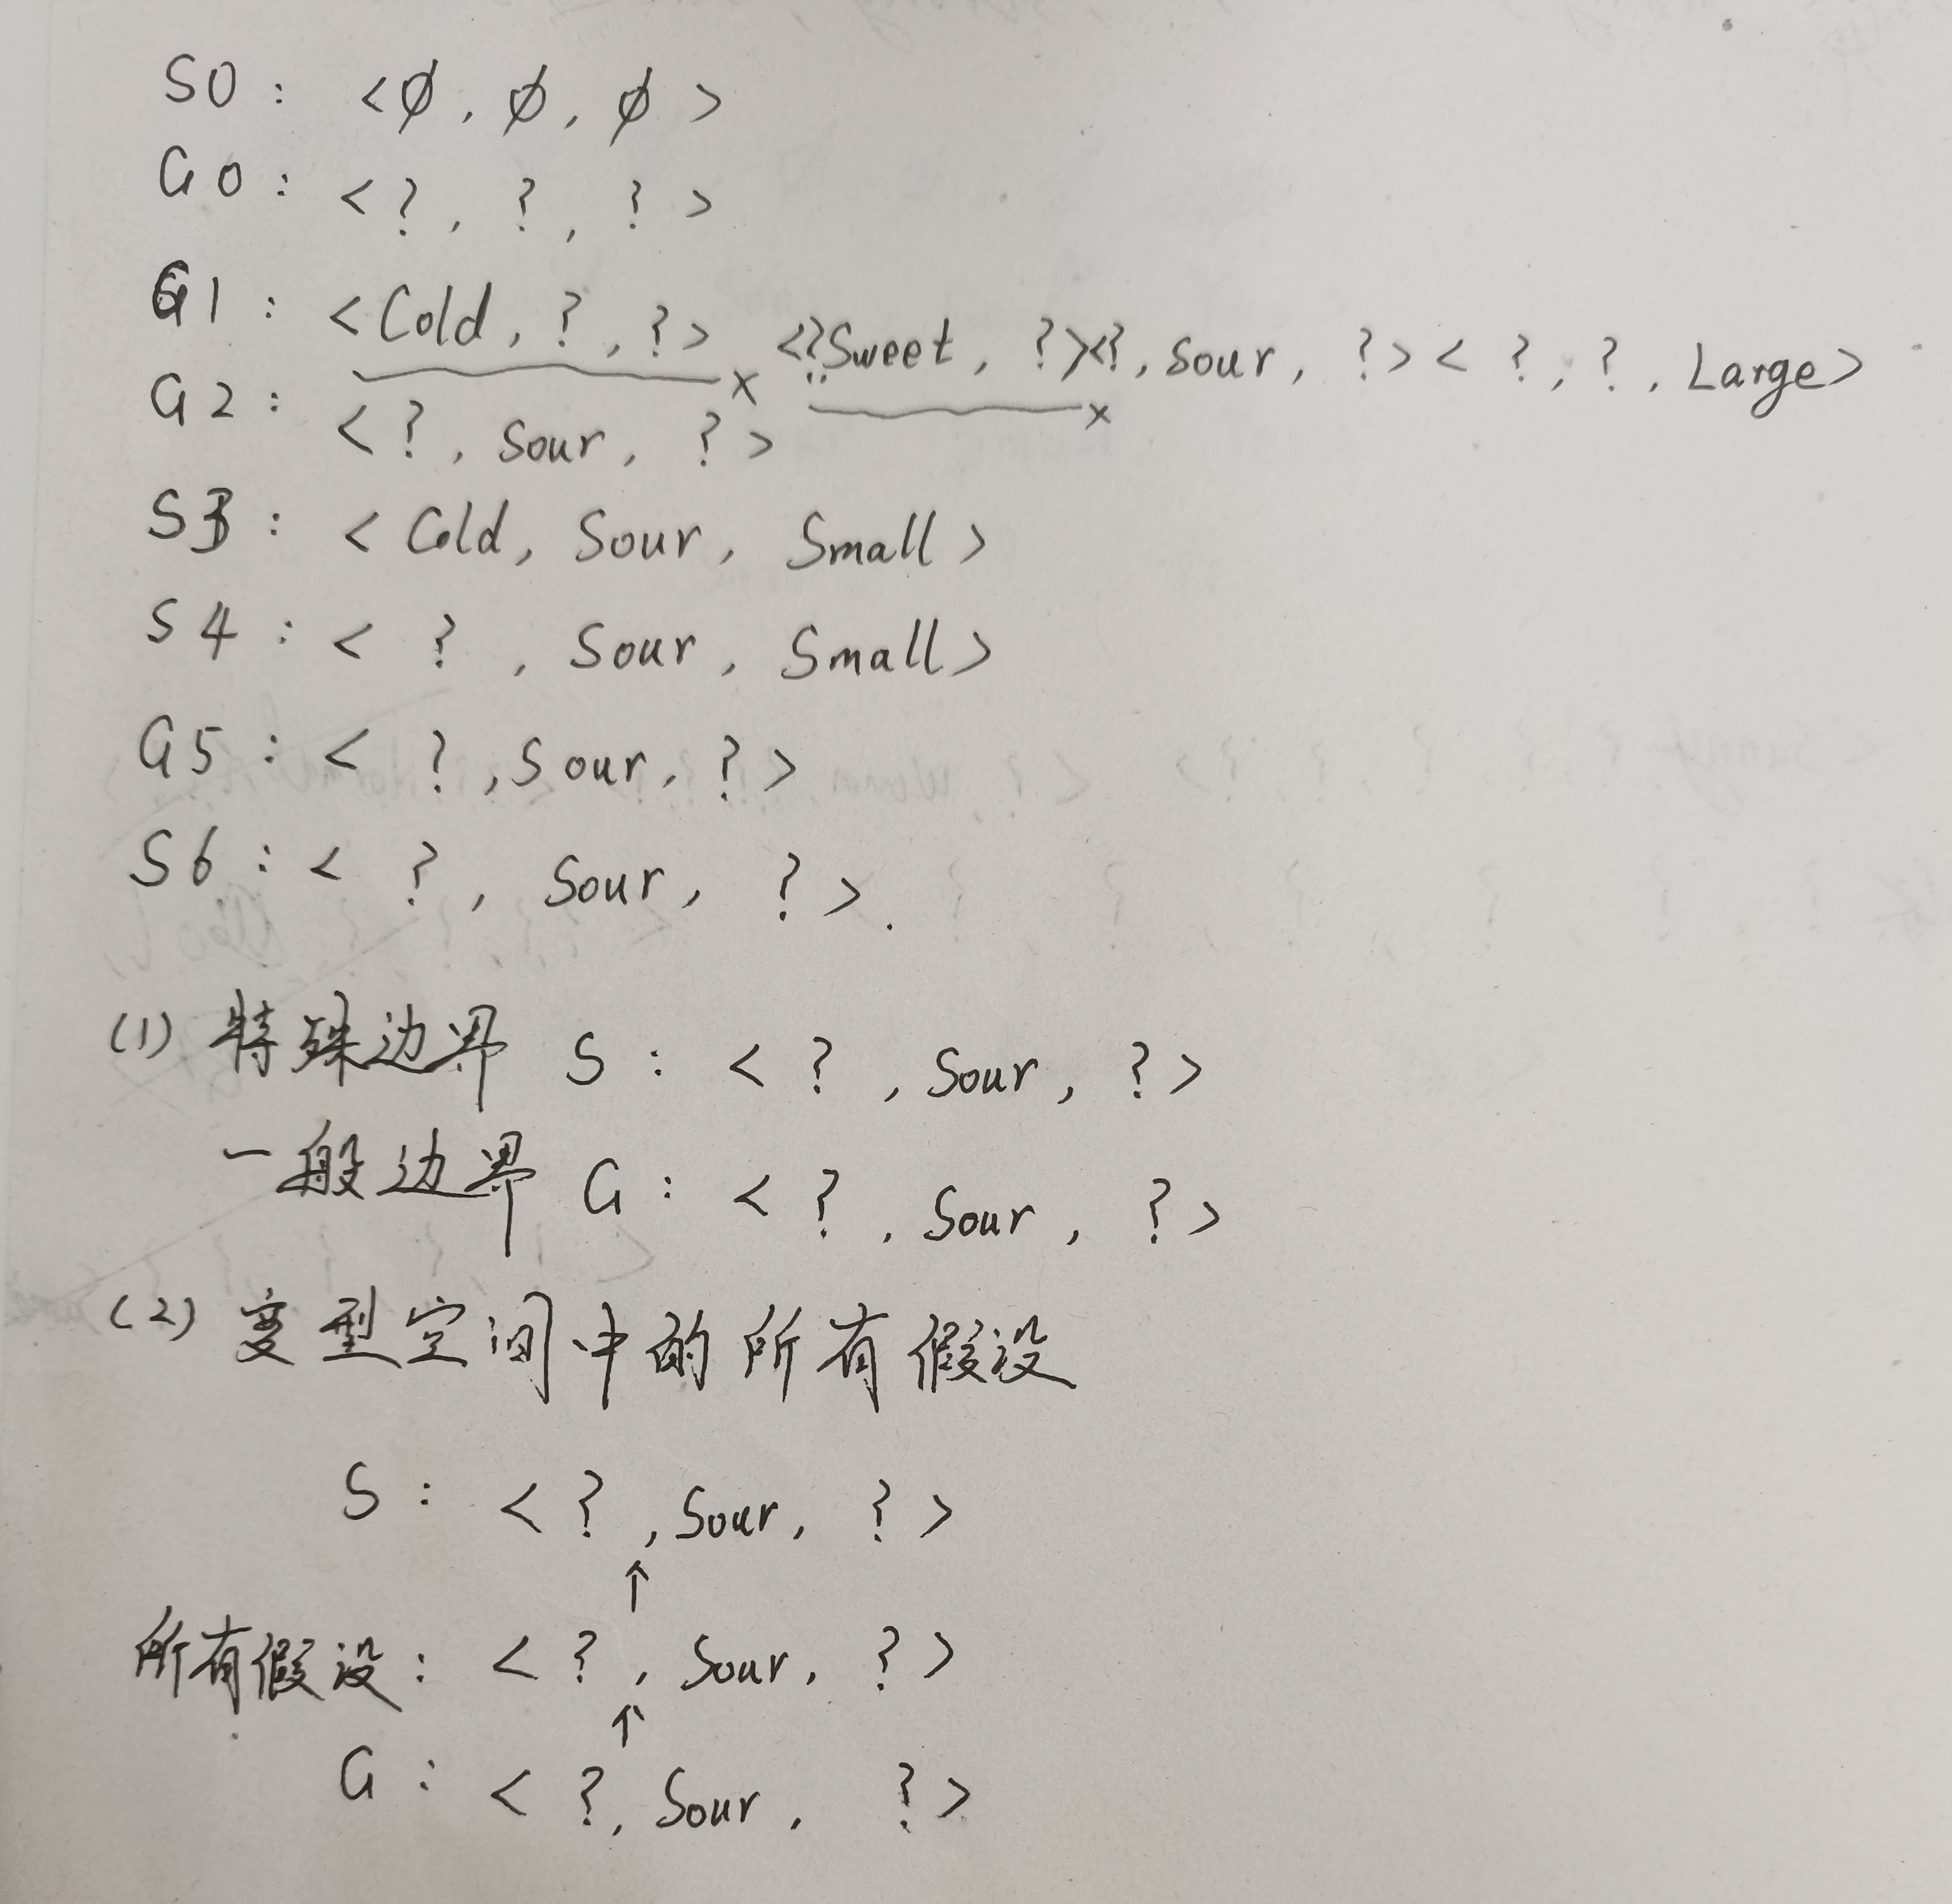 S0: <∅, ∅, ∅>
G0: <?, ?, ?>
G1: <Cold, ?, ?> <? Sweet, ?> <?, Sour, ?> < ?, ?, Large>
G2: <?, Sour, ?>
S3: < Cold, Sour, Small>
S4: < ?, Sour, Small>
G5: < ?, Sour, ?>
S6: < ?, Sour, ?>.
(1) 特殊边界 S: < ?, Sour, ?>
一般边界 G: < ?, Sour, ?>
(2) 变型空间中的所有假设
S: < ?, Sour, ?>
↑
所有假设: < ?, Sour, ?>
↑
G: < ?, Sour, ?>